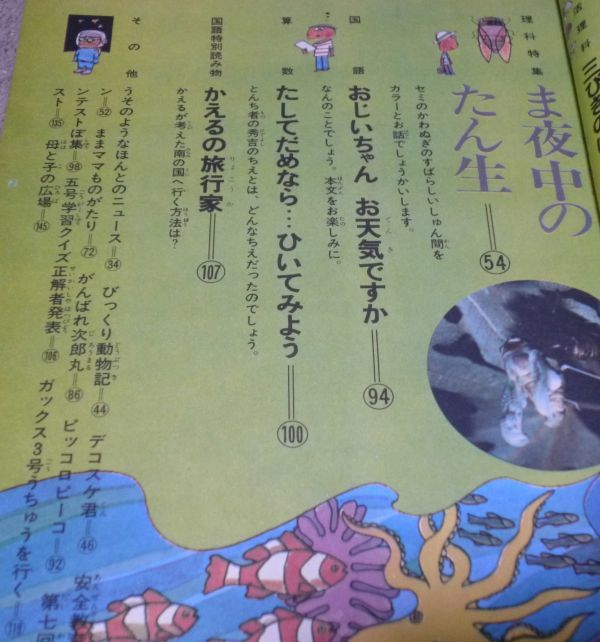 理科特集
ま夜中の
たん生
54
セミのかわぬぎのすばらしいしゅん間を
カラーとお話でしょうかいします。
国語
おじいちゃん お天気ですか
94
なんのことでしょう。本文をお楽しみに。
算数
たしてだめなら…ひいてみよう
100
とんち者の秀吉のちえとは、どんなちえだったのでしょう。
国語特別読み物
かえるの旅行家
107
かえるが考えた南の国へ行く方法は?
その他
うそのようなほんとのニュース=34 びっくり動物記=44 デコスケ君=46 安全教
ン=52 ままママものがたり=72 がんばれ次郎丸=86 ピッコロピーコ=92 第七回
ンテストぼ集=98 五号学習クイズ正解者発表=106 ガックス3号うちゅうを行く=118
スト=135 母と子の広場=145